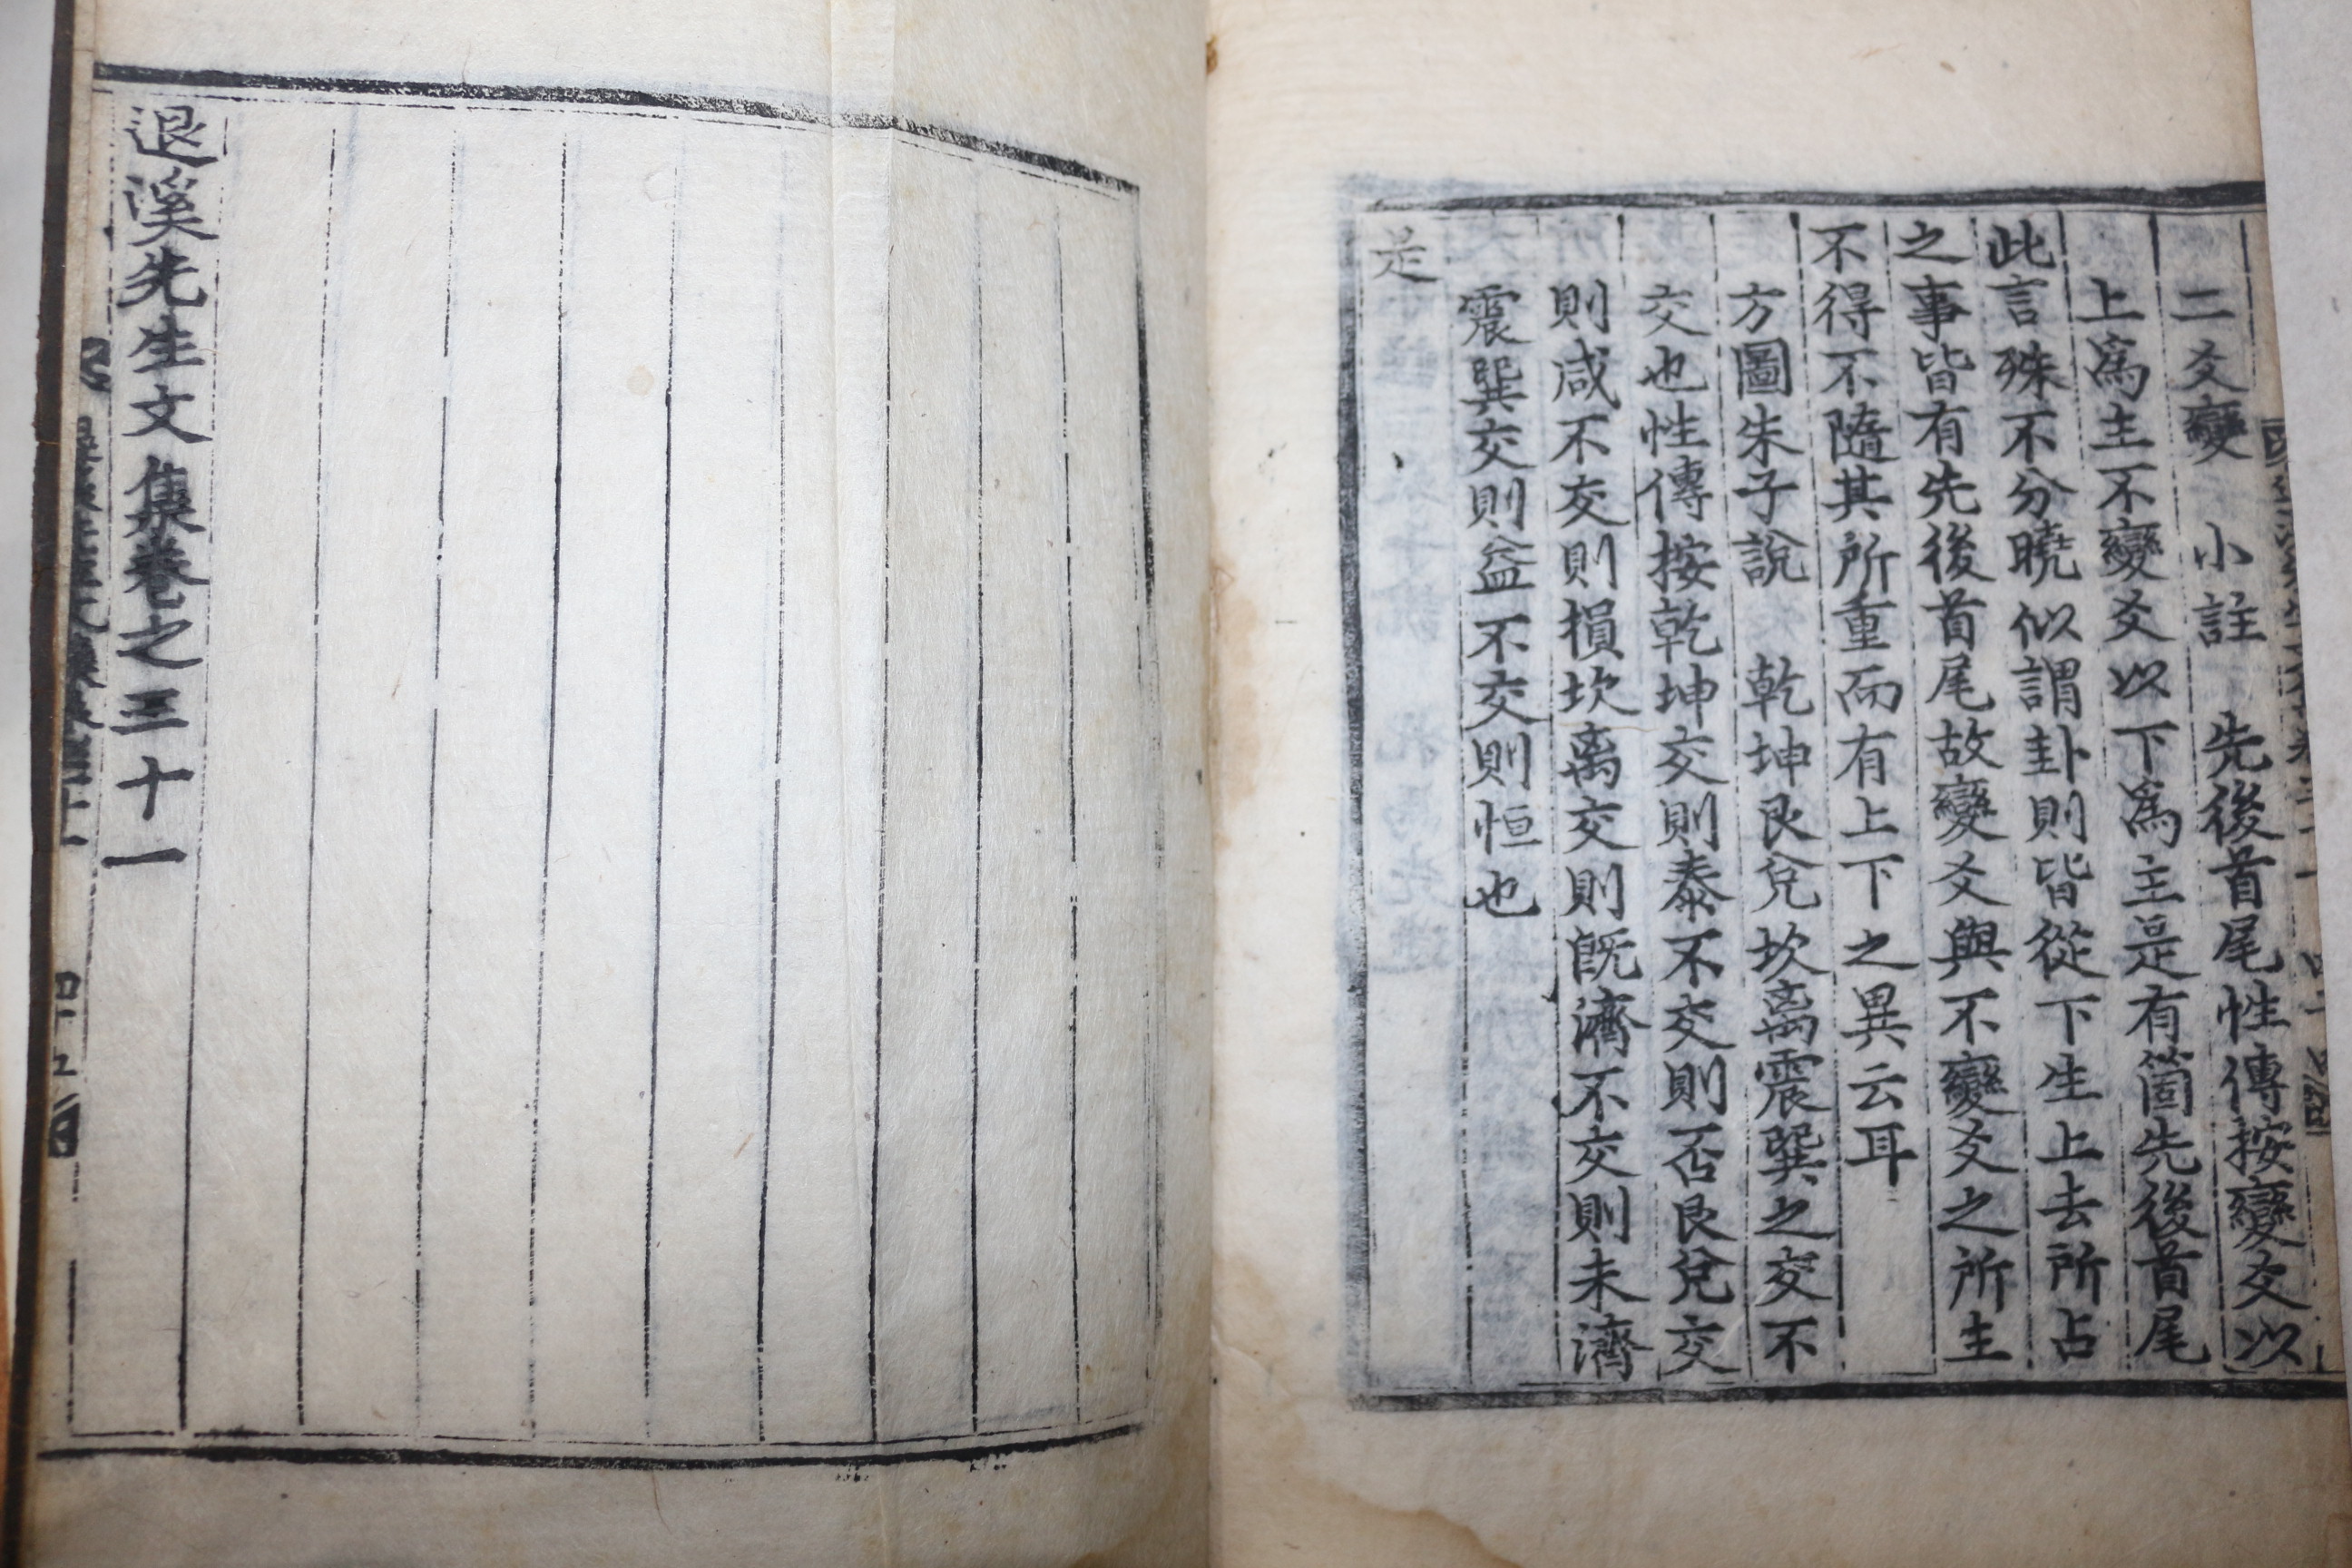 二爻變　小註　先後首尾性傳按變爻以
上爲主不變爻以下爲主是有箇先後首尾
此言殊不分曉似謂卦則皆從下生上去所占
之事皆有先後首尾故變爻與不變爻之所主
不得不隨其所重而有上下之異云耳
方圖朱子說　乾坤艮兌坎离震巽之交不
交也性傳按乾坤交則泰不交則否艮兌交
則咸不交則損坎离交則旣濟不交則未濟
震巽交則益不交則恒也
是
退溪先生文集卷之三十一